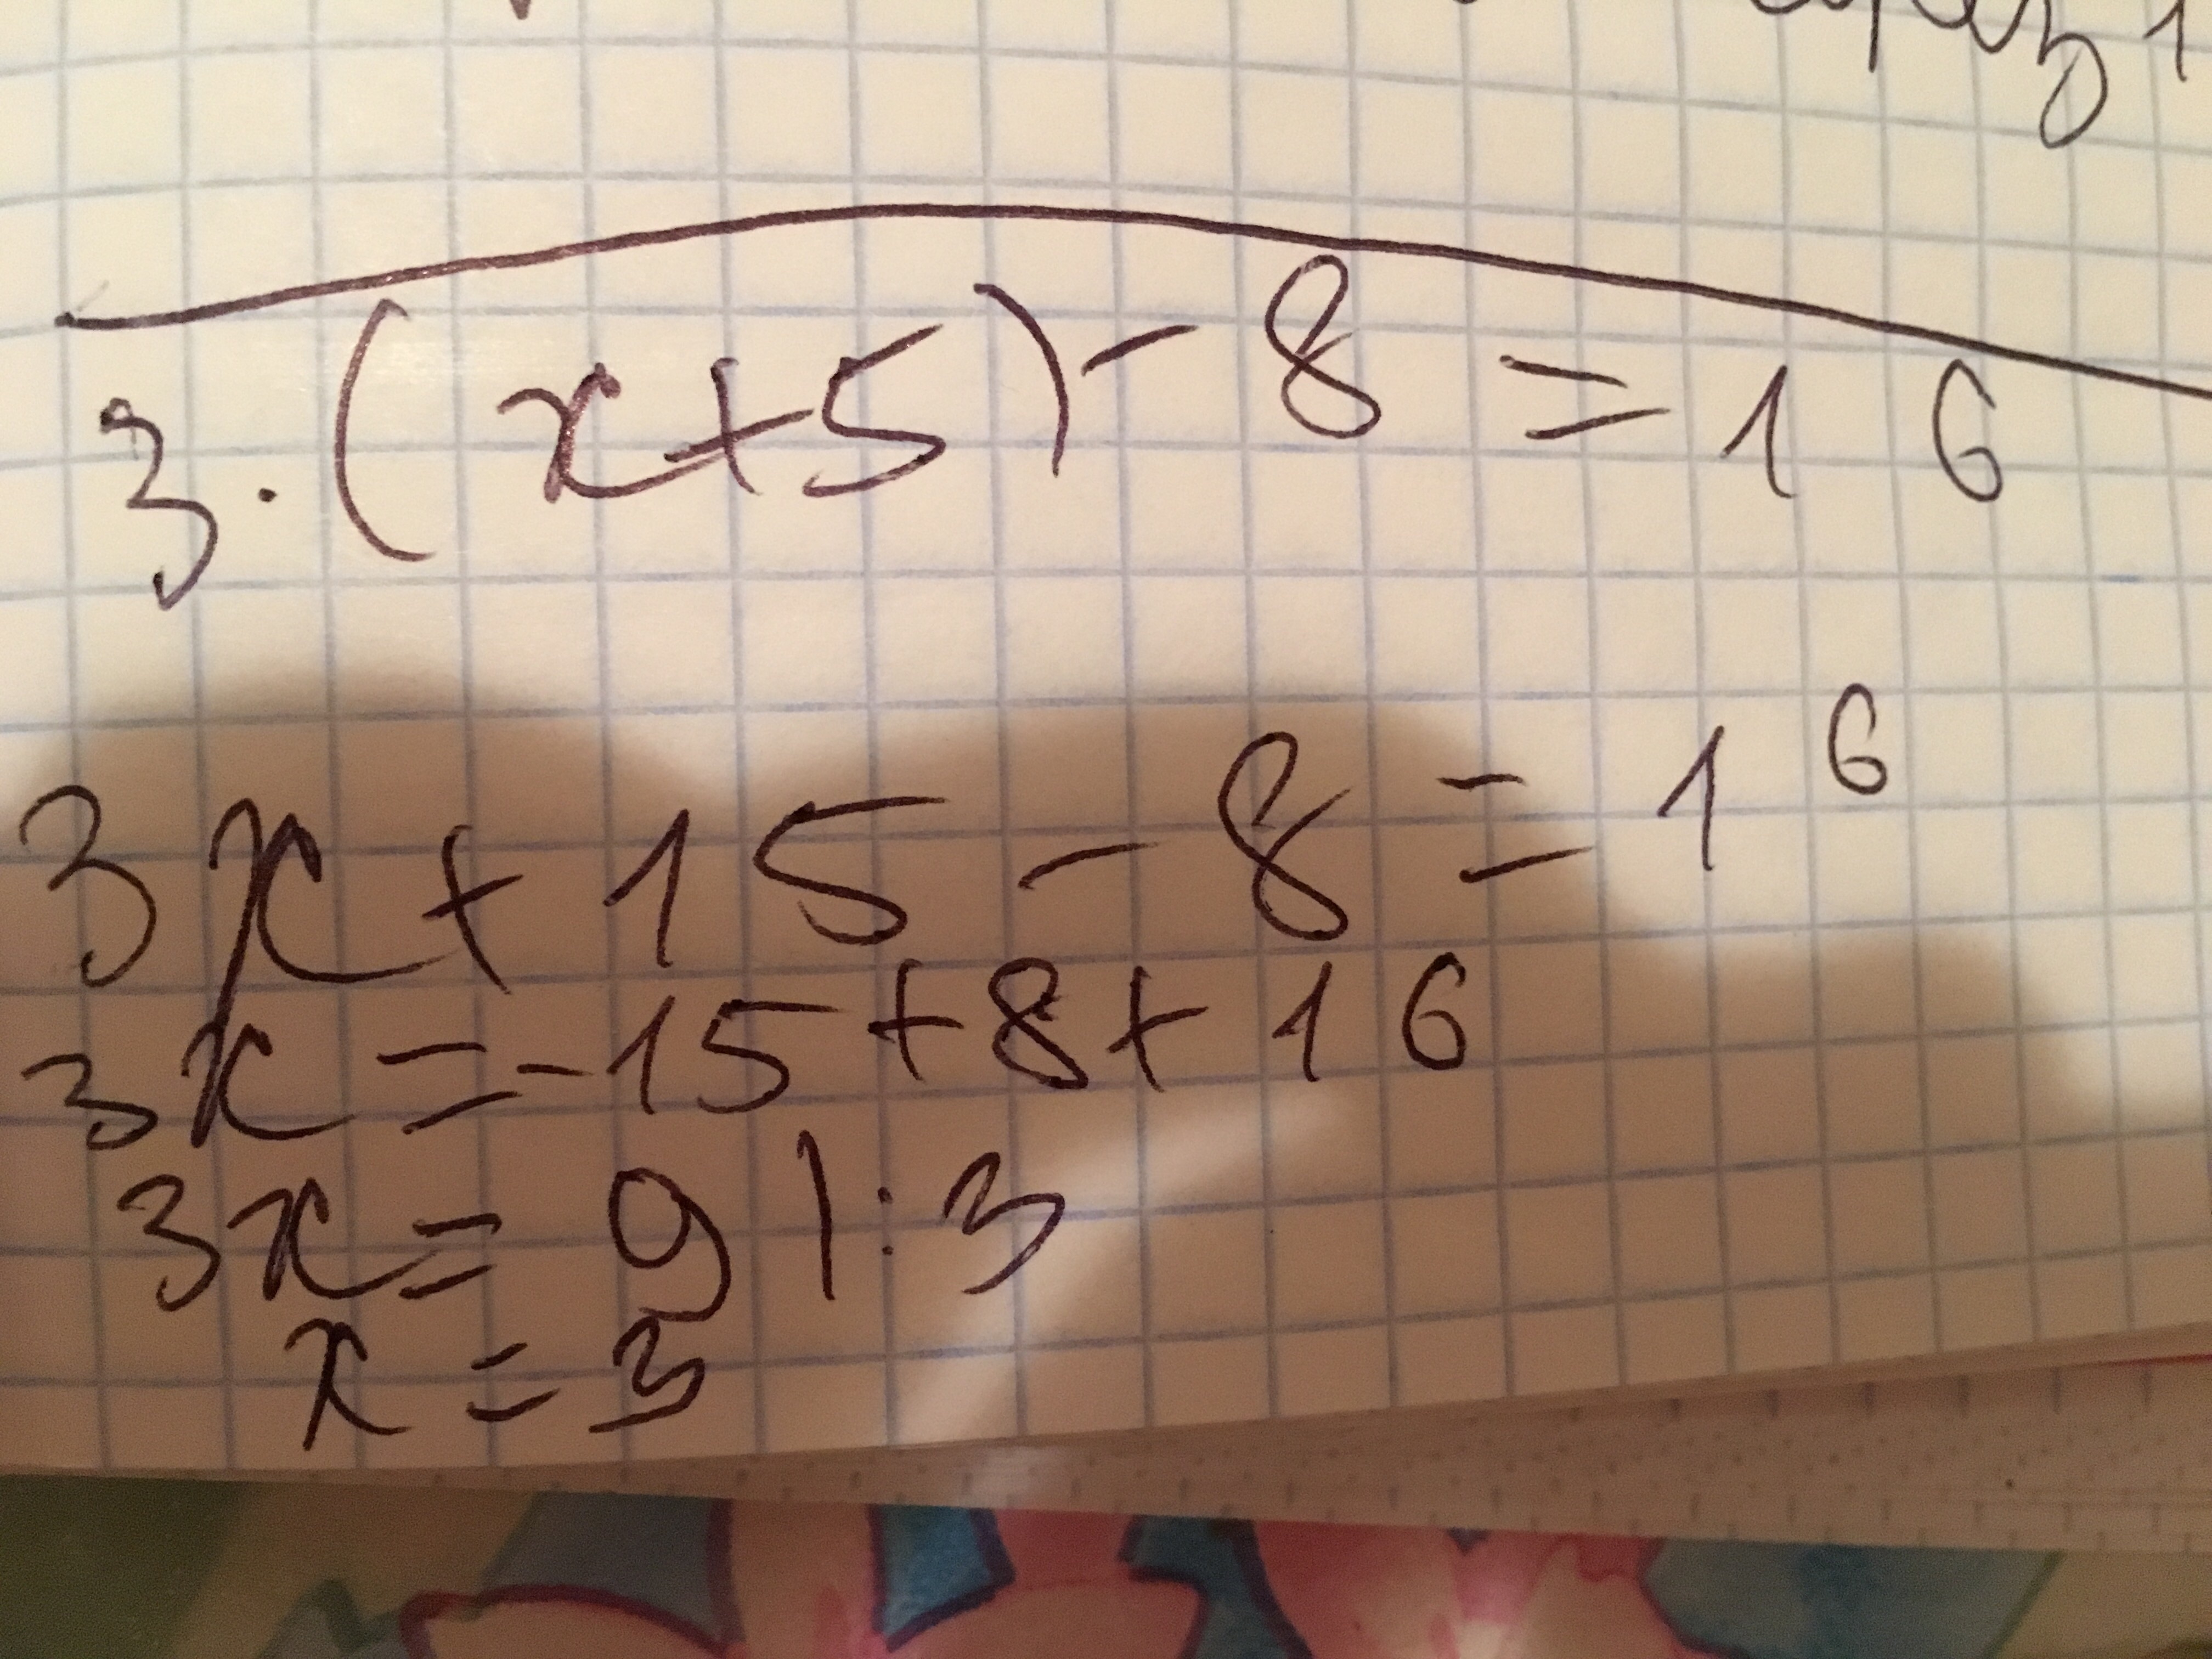 3·(x+5)-8=16
3x+15-8=16
3x=-15+8+16
3x=9|:3
x=3